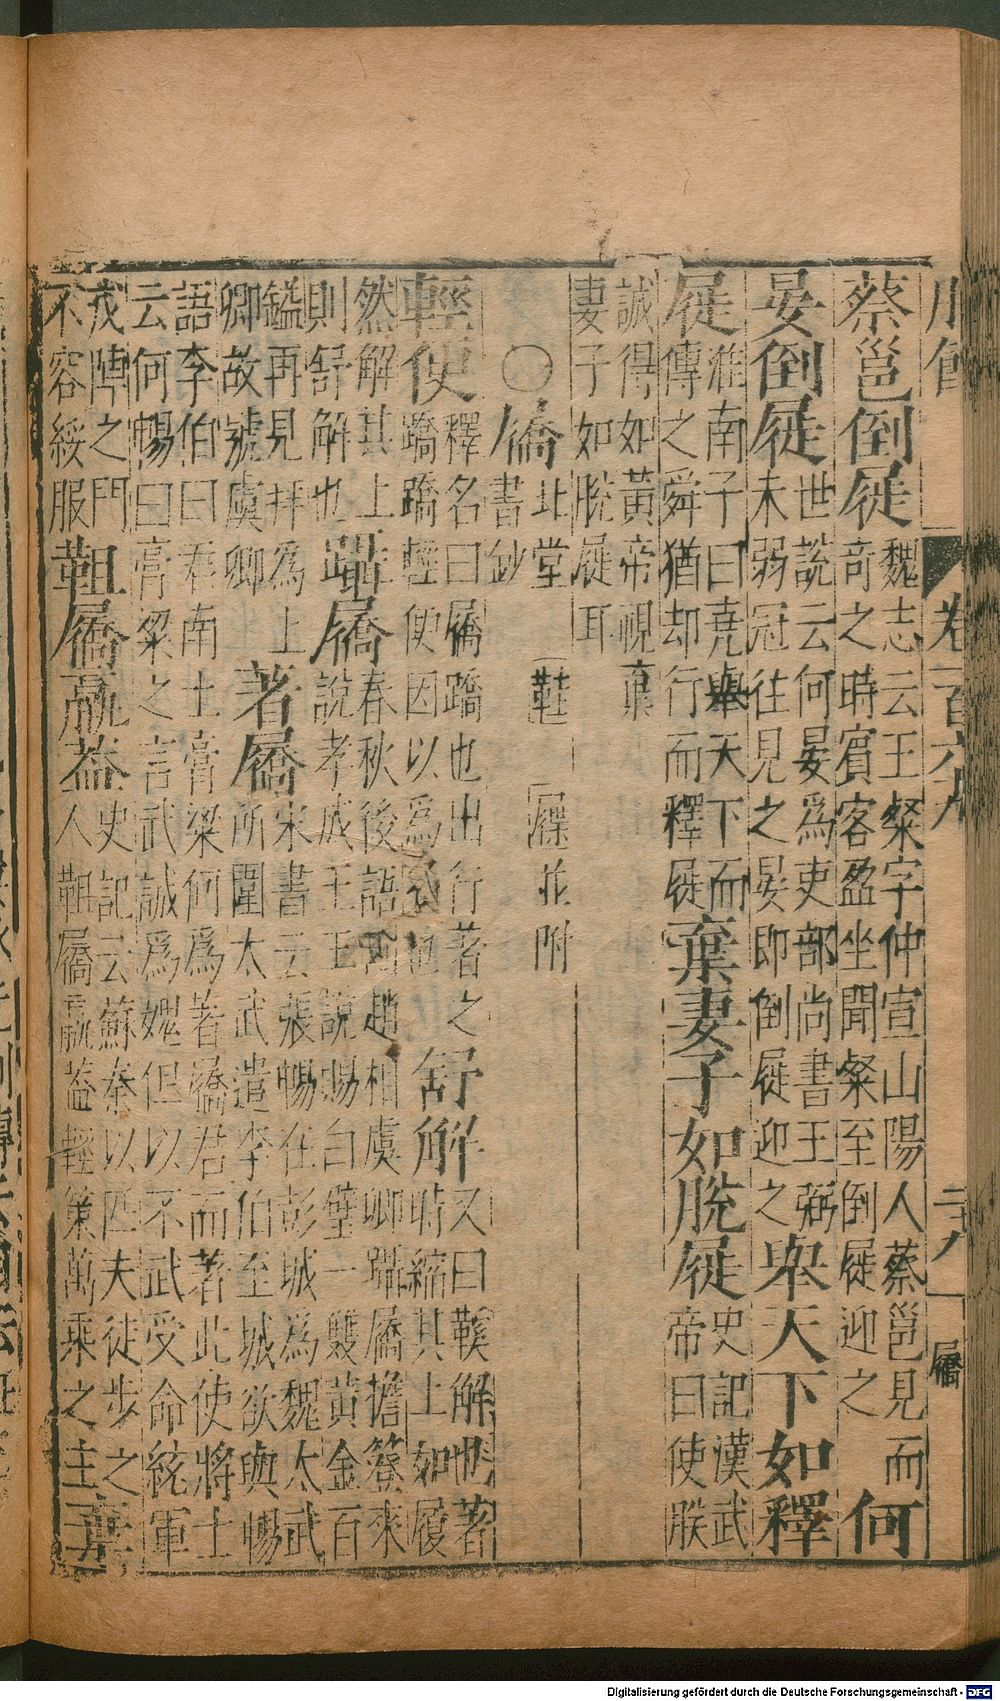 蔡邕倒屣魏志云王粲字仲宣山陽人蔡邕見而
奇之時賓客盈坐聞粲至倒屣迎之何
晏倒屣世說云何晏為吏部尚書王弼
未弱冠往見之晏即倒屣迎之舉天下如釋
屣淮南子曰堯舉天下而
傳之舜猶却行而釋屣棄妻子如脫屣史記漢武
帝曰使朕
誠得如黃帝視棄
妻子如脫屣耳
○屩北堂
書鈔
鞋
屧並附
輕便釋名曰屩蹻也出行著之
蹻蹻輕便因以為名也舒解又曰鞵解也著
時縮其上如履
然解其上
則舒解也躡屩春秋後語曰趙相虞卿躡屩擔簦來
說孝成王王說賜白璧一雙黃金百
鎰再見拜為上
卿故號虞卿著屩宋書云張暢在彭城為魏太武
所圍太武遣李伯至城欲與暢
語李伯曰君南土膏粱何為著屩君而著此使將士
云何暢曰膏粱之言武誠為媿但以不武受命統軍
戎陣之門
不容綏服靻屩羸蓋史記云蘇秦以匹夫徒步之
人靻屩羸蓋輕策萬乘之主棄
卷三百六九
二十八
屩
Digitalisierung gefördert durch die Deutsche Forschungsgemeinschaft - DFG